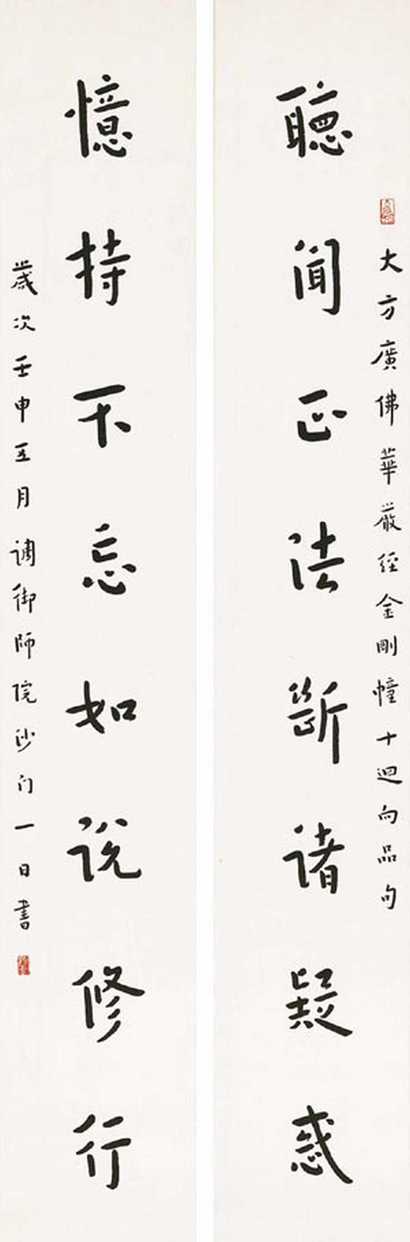 大方廣佛華嚴經金剛幢十迴向品句
聽聞正法斷諸疑惑
憶持不忘如說修行
歲次壬申五月調御師院沙门一日書